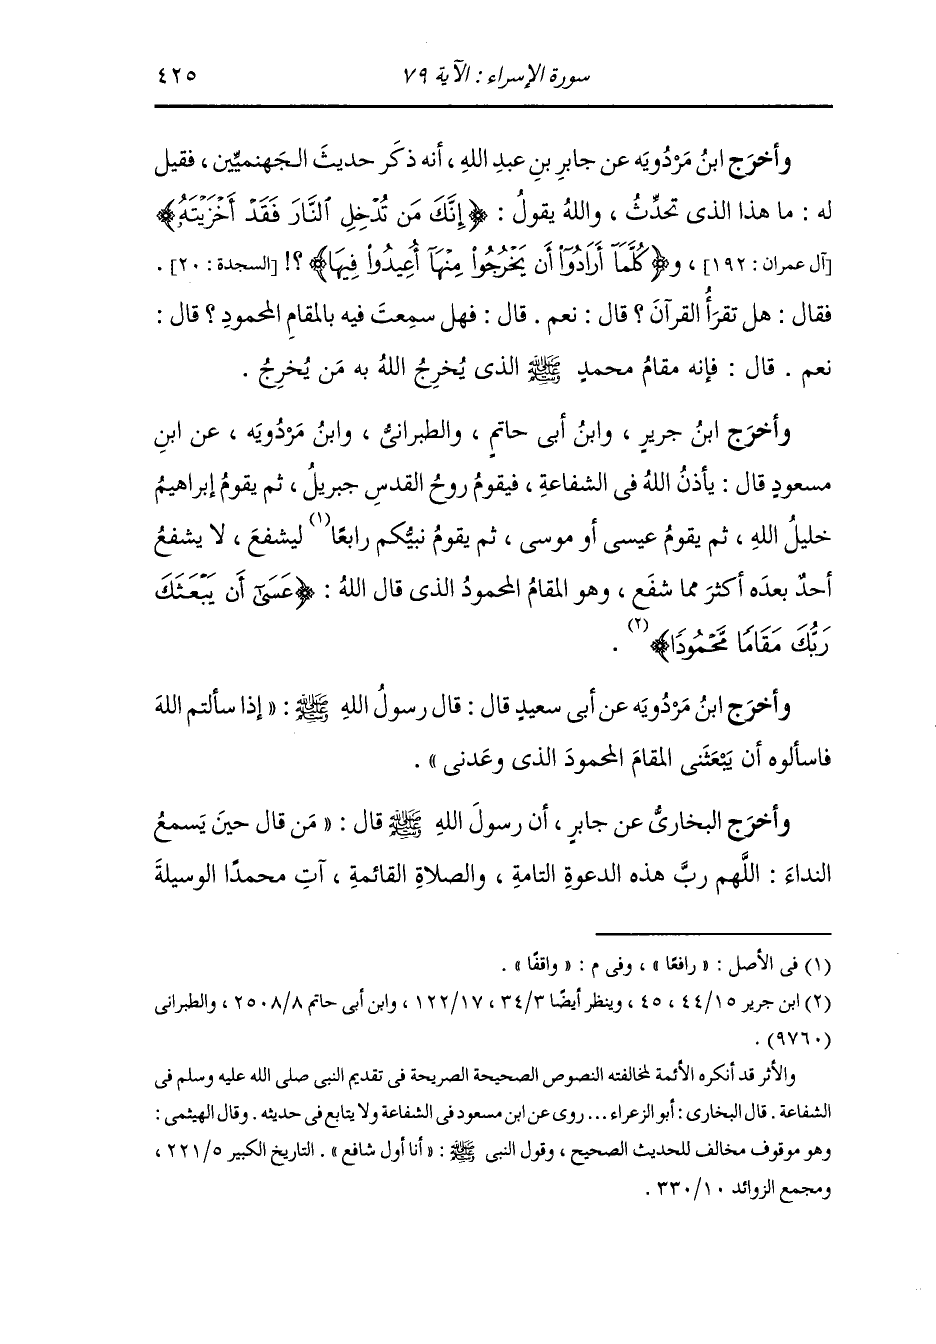 سورة الإسراء : الآية ٧٩ ٤٢٥
وأخرَج ابنُ مَرْدُويَه عن جابرِ بنِ عبدِ اللهِ ، أنه ذكَر حديثَ الجَهنميِّين ، فقيل
له : ما هذا الذى تحدِّثُ ، واللهُ يقولُ : ﴿إِنَّكَ مَن تُدْخِلِ ٱلنَّارَ فَقَدْ أَخْزَيْتَهُۥ﴾
[آل عمران : ١٩٢] ، و﴿كُلَّمَآ أَرَادُوٓا۟ أَن يَخْرُجُوا۟ مِنْهَآ أُعِيدُوا۟ فِيهَا﴾ ؟! [السجدة : ٢٠] .
فقال : هل تقرَأُ القرآنَ ؟ قال : نعم . قال : فهل سمِعتَ فيه بالمقامِ المحمودِ ؟ قال :
نعم . قال : فإنه مقامُ محمدٍ ﷺ الذى يُخرِجُ اللهُ به مَن يُخرِجُ .
وأخرَج ابنُ جريرٍ ، وابنُ أبى حاتمٍ ، والطبرانىُّ ، وابنُ مَرْدُويَه ، عن ابنِ
مسعودٍ قال : يأذنُ اللهُ فى الشفاعةِ ، فيقومُ روحُ القدسِ جبريلُ ، ثم يقومُ إبراهيمُ
خليلُ اللهِ ، ثم يقومُ عيسى أو موسى ، ثم يقومُ نبيُّكم رابعًا(١) ليشفعَ ، لا يشفعُ
أحدٌ بعدَه أكثرَ مما شفَع ، وهو المقامُ المحمودُ الذى قال اللهُ : ﴿عَسَىٰٓ أَن يَبْعَثَكَ
رَبُّكَ مَقَامًا مَّحْمُودًا﴾(٢) .
وأخرَج ابنُ مَرْدُويَه عن أبى سعيدٍ قال : قال رسولُ اللهِ ﷺ : « إذا سألتم اللهَ
فاسألوه أن يَبْعَثَنى المقامَ المحمودَ الذى وعَدنى » .
وأخرَج البخارىُّ عن جابرٍ ، أن رسولَ اللهِ ﷺ قال : « مَن قال حينَ يَسمعُ
النداءَ : اللَّهم ربَّ هذه الدعوةِ التامةِ ، والصلاةِ القائمةِ ، آتِ محمدًا الوسيلةَ
(١) فى الأصل : « رافعًا » ، وفى م : « واقفًا » .
(٢) ابن جرير ١٥/ ٤٤ ، ٤٥ ، وينظر أيضًا ٣/ ٣٤ ، ١٧/ ١٢٢ ، وابن أبى حاتم ٨/ ٢٥٠٨ ، والطبرانى
(٩٧٦٠) .
والأثر قد أنكره الأئمة لمخالفته النصوص الصحيحة الصريحة فى تقديم النبى صلى الله عليه وسلم فى
الشفاعة . قال البخارى : أبو الزعراء ... روى عن ابن مسعود فى الشفاعة ولا يتابع فى حديثه . وقال الهيثمى :
وهو موقوف مخالف للحديث الصحيح ، وقول النبى ﷺ : « أنا أول شافع » . التاريخ الكبير ٥/ ٢٢١ ،
ومجمع الزوائد ١٠/ ٣٣٠ .